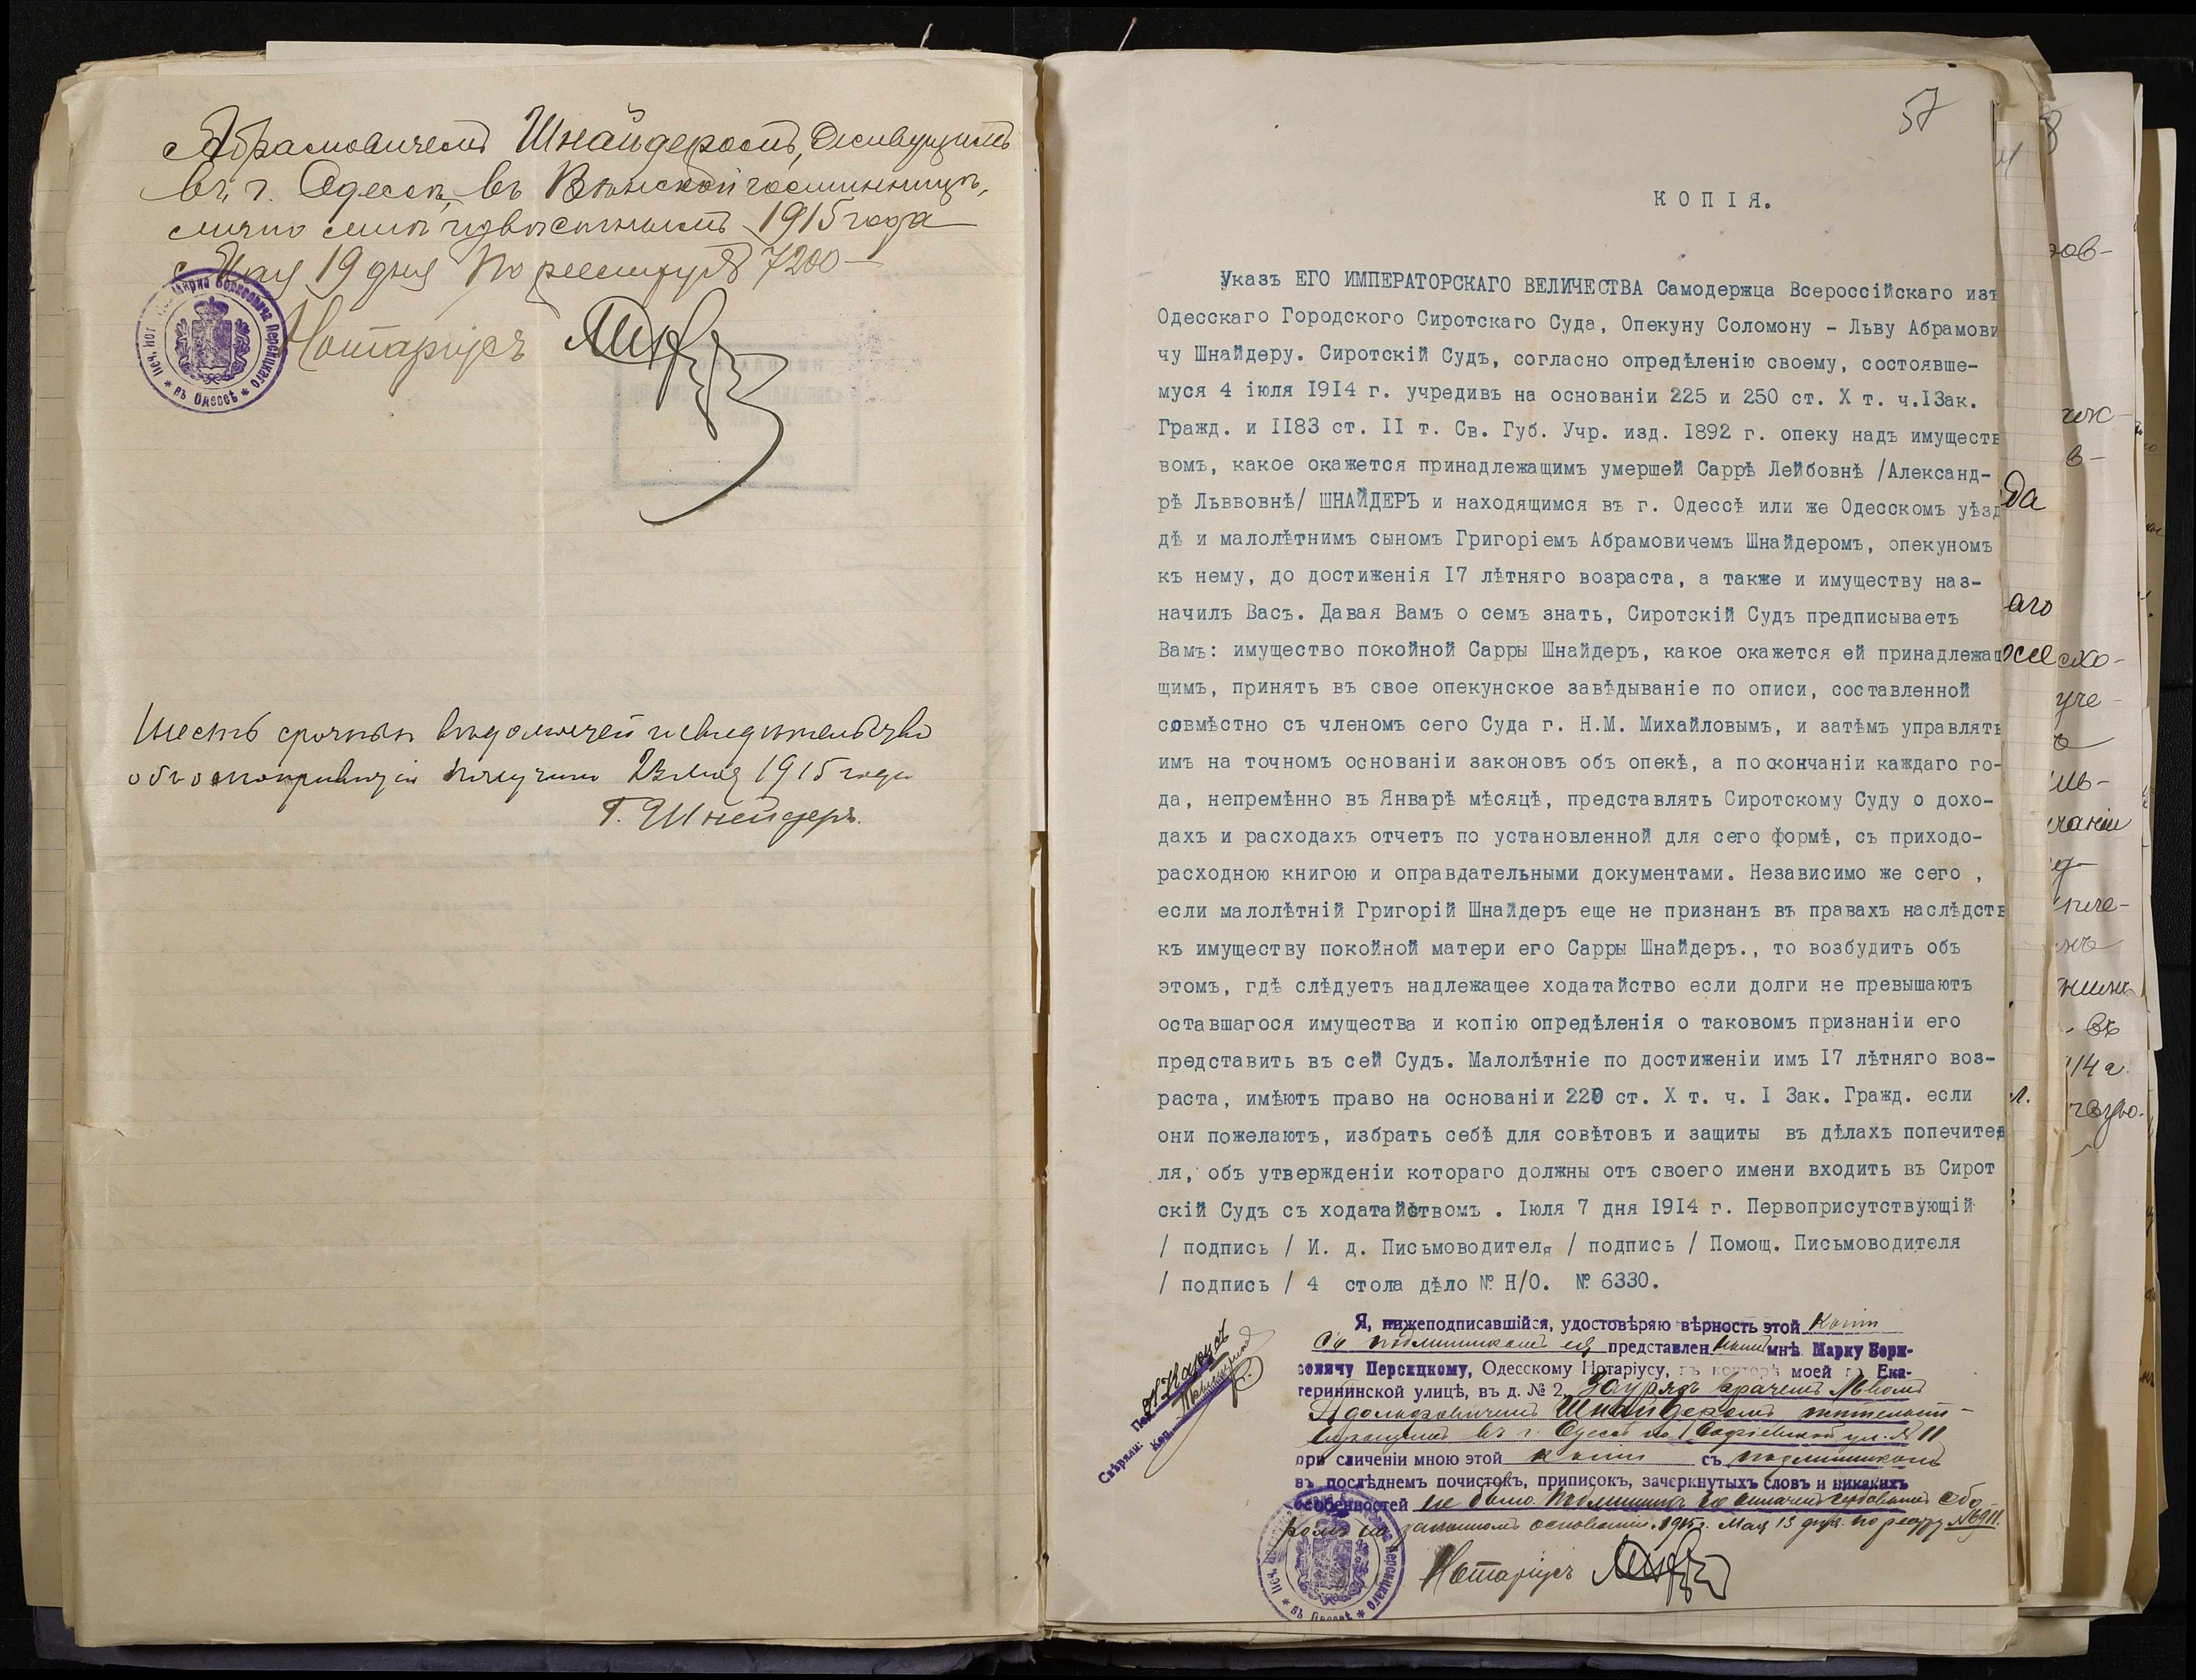 Абрамовичемъ Шнайдеромъ, живущимъ
въ г. Одессѣ, въ Вѣнской гостинницѣ,
лично мнѣ извѣстнымъ 1915 года
Мая 19 дня По реестру № 7200
Нотаріусъ
Шесть срочныхъ вѣдомостей и свидѣтельство
получилъ 23 Мая 1915 года
Г. Шнейдеръ.
57
КОПІЯ.
Указъ ЕГО ИМПЕРАТОРСКАГО ВЕЛИЧЕСТВА Самодержца Всероссійскаго изъ
Одесскаго Городского Сиротскаго Суда, Опекуну Соломону - Льву Абрамови
чу Шнайдеру. Сиротскій Судъ, согласно опредѣленію своему, состоявше-
муся 4 іюля 1914 г. учредивъ на основаніи 225 и 250 ст. X т. ч.IЗак.
Гражд. и II83 ст. II т. Св. Губ. Учр. изд. I892 г. опеку надъ имуществ
вомъ, какое окажется принадлежащимъ умершей Саррѣ Лейбовнѣ /Александ-
рѣ Львовнѣ/ ШНАЙДЕРЪ и находящимся въ г. Одессѣ или же Одесскомъ уѣзд
дѣ и малолѣтнимъ сыномъ Григоріемъ Абрамовичемъ Шнайдеромъ, опекуномъ
къ нему, до достиженія I7 лѣтняго возраста, а также и имуществу наз-
начилъ Васъ. Давая Вамъ о семъ знать, Сиротскій Судъ предписываетъ
Вамъ: имущество покойной Сарры Шнайдеръ, какое окажется ей принадлежащ
щимъ, принять въ свое опекунское завѣдываніе по описи, составленной
совмѣстно съ членомъ сего Суда г. Н.М. Михайловымъ, и затѣмъ управлять
имъ на точномъ основаніи законовъ объ опекѣ, а по окончаніи каждаго го-
да, непремѣнно въ Январѣ мѣсяцѣ, представлять Сиротскому Суду о дохо-
дахъ и расходахъ отчетъ по установленной для сего формѣ, съ приходо-
расходною книгою и оправдательными документами. Независимо же сего ,
если малолѣтній Григорій Шнайдеръ еще не признанъ въ правахъ наслѣдств
къ имуществу покойной матери его Сарры Шнайдеръ., то возбудить объ
этомъ, гдѣ слѣдуетъ надлежащее ходатайство если долги не превышаютъ
оставшагося имущества и копію опредѣленія о таковомъ признаніи его
представить въ сей Судъ. Малолѣтніе по достиженіи имъ I7 лѣтняго воз-
раста, имѣютъ право на основаніи 220 ст. X т. ч. I Зак. Гражд. если
они пожелаютъ, избрать себѣ для совѣтовъ и защиты въ дѣлахъ попечите
ля, объ утвержденіи котораго должны отъ своего имени входить въ Сирот
скій Судъ съ ходатайствомъ . Іюля 7 дня I9I4 г. Первоприсутствующій
/ подпись / И. д. Письмоводителя / подпись / Помощ. Письмоводителя
/ подпись / 4 стола дѣло № Н/О. № 6330.
Я, нижеподписавшійся, удостовѣряю вѣрность этой копіи
съ подлинникомъ ея представленнымъ мнѣ Марку Бори-
совичу Персицкому, Одесскому Нотаріусу, въ конторѣ моей по Ека-
терининской улицѣ, въ д. № 2, Зауряд врачемъ Львомъ
Адольфовичемъ Шнайдеромъ жительст-
вующимъ въ г. Одессѣ по Софіевской ул. № 11
при сличеніи мною этой копіи съ подлинникомъ
въ послѣднемъ почистокъ, приписокъ, зачеркнутыхъ словъ и никакихъ
особенностей не было. Подлинникъ оплаченъ гербовымъ сбо
ромъ на законномъ основаніи. 1915 г. Мая 13 дня. по реестру № 6911.
Нотаріусъ
Свѣряли: